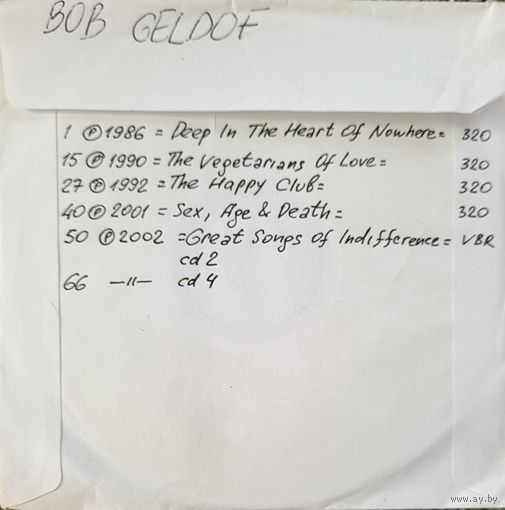 BOB GELDOF
1 ℗ 1986 = Deep In The Heart Of Nowhere = 320
15 ℗ 1990 = The Vegetarians Of Love = 320
27 ℗ 1992 = The Happy Club = 320
40 ℗ 2001 = Sex, Age & Death = 320
50 ℗ 2002 = Great Songs Of Indifference = VBR
cd 2
66 —"— cd 4
www.ay.by